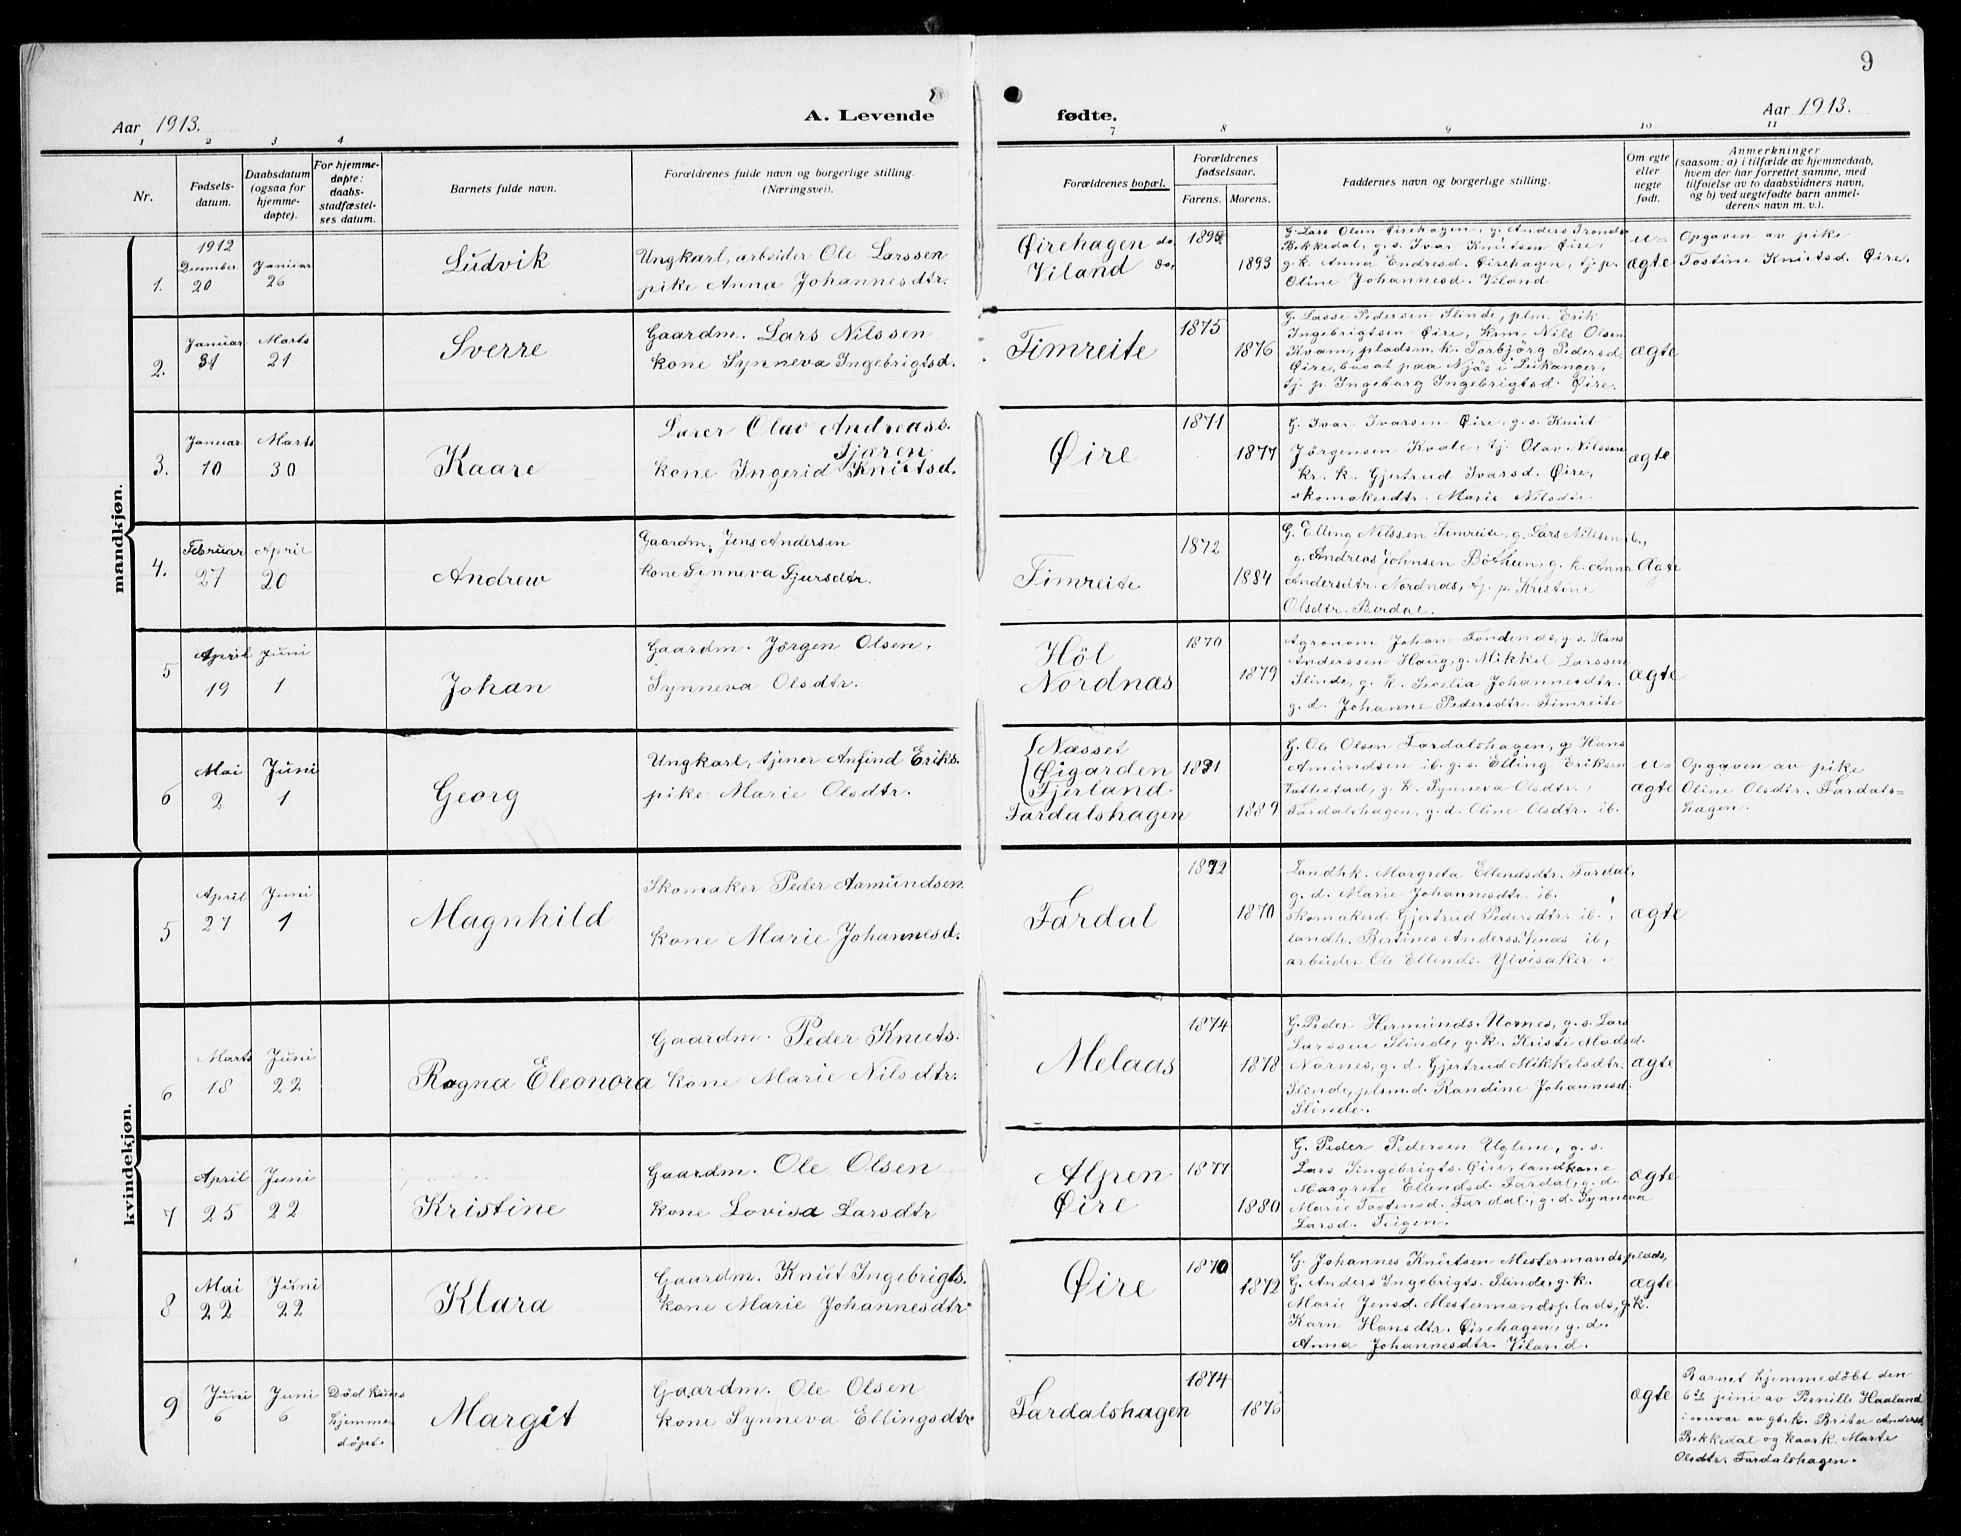 9
Aar 1913.
A. Levende
fødte.
Aar 1913.
1 2 3 4 7 8 9 10 11
Nr.
Fødsels-
datum.
Daabsdatum
(ogsaa for
hjemme-
døpte).
For hjemme-
døpte:
daabs-
stadfæstel-
ses datum.
Barnets fulde navn.
Forældrenes fulde navn og borgerlige stilling.
(Næringsvei).
Forældrenes bopæl.
Forældrenes
fødselsaar.
Farens. Morens.
Faddernes navn og borgerlige stilling.
Om egte
eller
uegte
født.
Anmerkninger
(saasom: a) i tilfælde av hjemmedaab,
hvem der har forrettet samme, med
tilføielse av to daabsvidners navn,
og b) ved uegtefødte barn anmel-
derens navn m. v.).
mandkjøn.
1.
1912
December
20
Januar
26
Ludvik
Ungkarl, arbeider Ole Larssen
pike Anna Johannesdtr.
Øirehagen do.
Viland do.
1893
G. Lars Olsen Øirehagen, g. Anders Tronds.
Bekkedal, g. s. Ivar Knutsen Øire,
g. k. Anna Endresd. Øirehagen, tj. p.
Oline Johannesd. Viland
u=
ægte
Opgaven av pike
Tostine Knutsd. Øire.
2.
Januar
31
Marts
21
Sverre
Gaardm. Lars Nilssen
kone Synneva Ingebrigtsd.
Fimreite
1875
1876
G. Lasse Pedersen Slinde, plm. Erik
Ingebrigtsen Øire, krm. Nils Olsen
Kvam, pladsm. k. Torbjörg Pedersd.
Øire, bosat paa Njøs i Leikanger,
tj. p. Ingeborg Ingebrigtsd. Øire.
ægte
3.
Januar
10
Marts
30
Kaare
Lærer Olav Andreass.
Tjæren
kone Ingerid Knutsd.
Øire
1871
1877
G. Ivar Ivarsen Øire, g. s. Knut
Jørgensen Kvale, tj. Olav Nilssen
kr. k. Gjertrud Ivarsd. Øire,
skomakerdtr. Marie Nilsdtr.
ægte
4.
Februar
27
April
20
Andrew
Gaardm. Jens Andersen
kone Synneva Sjursdtr.
Fimreite
1872
1884
G. Elling Nilssen Fimreite, g. Lars Nilssen ib.,
g. Andreas Johnsen Bøthun, g. k. Anna
Andersdtr. Nordnæs, tj. p. Kristine
Olsdtr. Berdal.
Ægte
5
April
19
Juni
1
Johan
Gaardm. Jørgen Olsen.
Synneva Olsdtr.
Høl
Nordnæs
1870
1879
Agronom Johan Tondenæs, g. s. Hans
Anderssen Haug, g. Mikkel Larssen
Slinde, g. k. Secelia Johannesdtr.
g. d. Johanne Pedersdtr. Fimreite
ægte
6
Mai
2
Juni
1
Georg
Ungkarl, tjener Anfind Eriks.
pike Marie Olsdtr.
Næsset
Øigarden
Fjerland
Fardalshagen
1889
G. Ole Olsen Fardalshagen, g. Hans
Amundsen ib. g. s. Elling Eriksen
g. k. Synneva Olsdtr.,
Fardalshagen, g. d. Oline Olsdtr. ib.
u=
ægte
Opgaven av pike
Oline Olsdtr. Fardals=
hagen.
kvindekjøn.
5
April
27
Juni
1
Magnhild
Skomaker Peder Aamundsen
kone Marie Johannesd.
Fardal
1872
1870
Landhk. Margreta Ellendsdtr. Fardal,
g. d. Marie Johannesdtr. ib.
skomakerd. Gjertrud Pedersdtr. ib.,
landh. Bertines Anderss. Venæs ib,
arbeider Ole Ellends. Ylvisaker.
ægte
6
Marts
18
Juni
22
Ragna Eleonora
Gaardm. Peder Knuts.
kone Marie Nilsdtr.
Melaas
1874
1878
G. Peder Hermunds. Nornes, g. s. Lars
Larssen Slinde, g. k. Kristi Madsd.
Nornes, g. d. Gjertrud Mikkelsdtr.
Slinde, plsm. d. Randine Johannesd.
Slinde.
ægte
7
April
25
Juni
22
Kristine
Gaardm. Ole Olsen
kone Lovisa Larsdtr
Alpen
Øire
1877
1880
G. Peder Pedersen Uglene, g. s.
Lars Ingebrigts. Øire, landkone
Margrete Ellendsd. Fardal, g. d.
Marie Tostensd. Fardal, g. d. Synneva
Larsd. Tugen.
ægte
8
Mai
22
Juni
22
Klara
Gaardm. Knut Ingebrigts.
kone Marie Johannesdtr.
Øire
1870
1872
G. Johannes Knutsen Mestermandsplads,
G. Anders Ingebrigts. Slinde, g. k.
Marie Jensd. Mestermandsplads, g. k.
Karn Hansdtr. Øirehagen, g. d.
Anna Johannesdtr. Viland.
ægte
9
Juni
6
Juni
6
Død kuns
hjemme
døpt.
Margit
Gaardm. Ole Olsen
kone Synneva Ellingsdtr.
Fardalshagen
1874
1876
ægte
Barnet hjemmedøbt den
6te juni av Pernille Haaland
i nærvær av gbrk. Brita Andersd.
Bekkedal og kaark. Marte
Olsdtr. Fardalshagen.